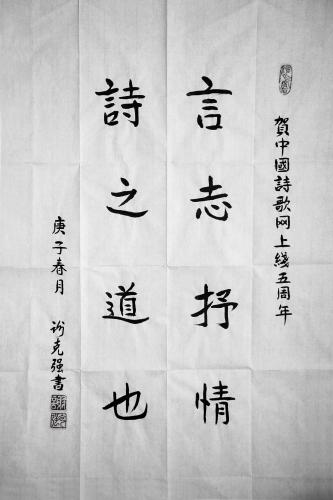 賀中國詩歌网上綫五周年
言志抒情
詩之道也
庚子春月 谢克强書